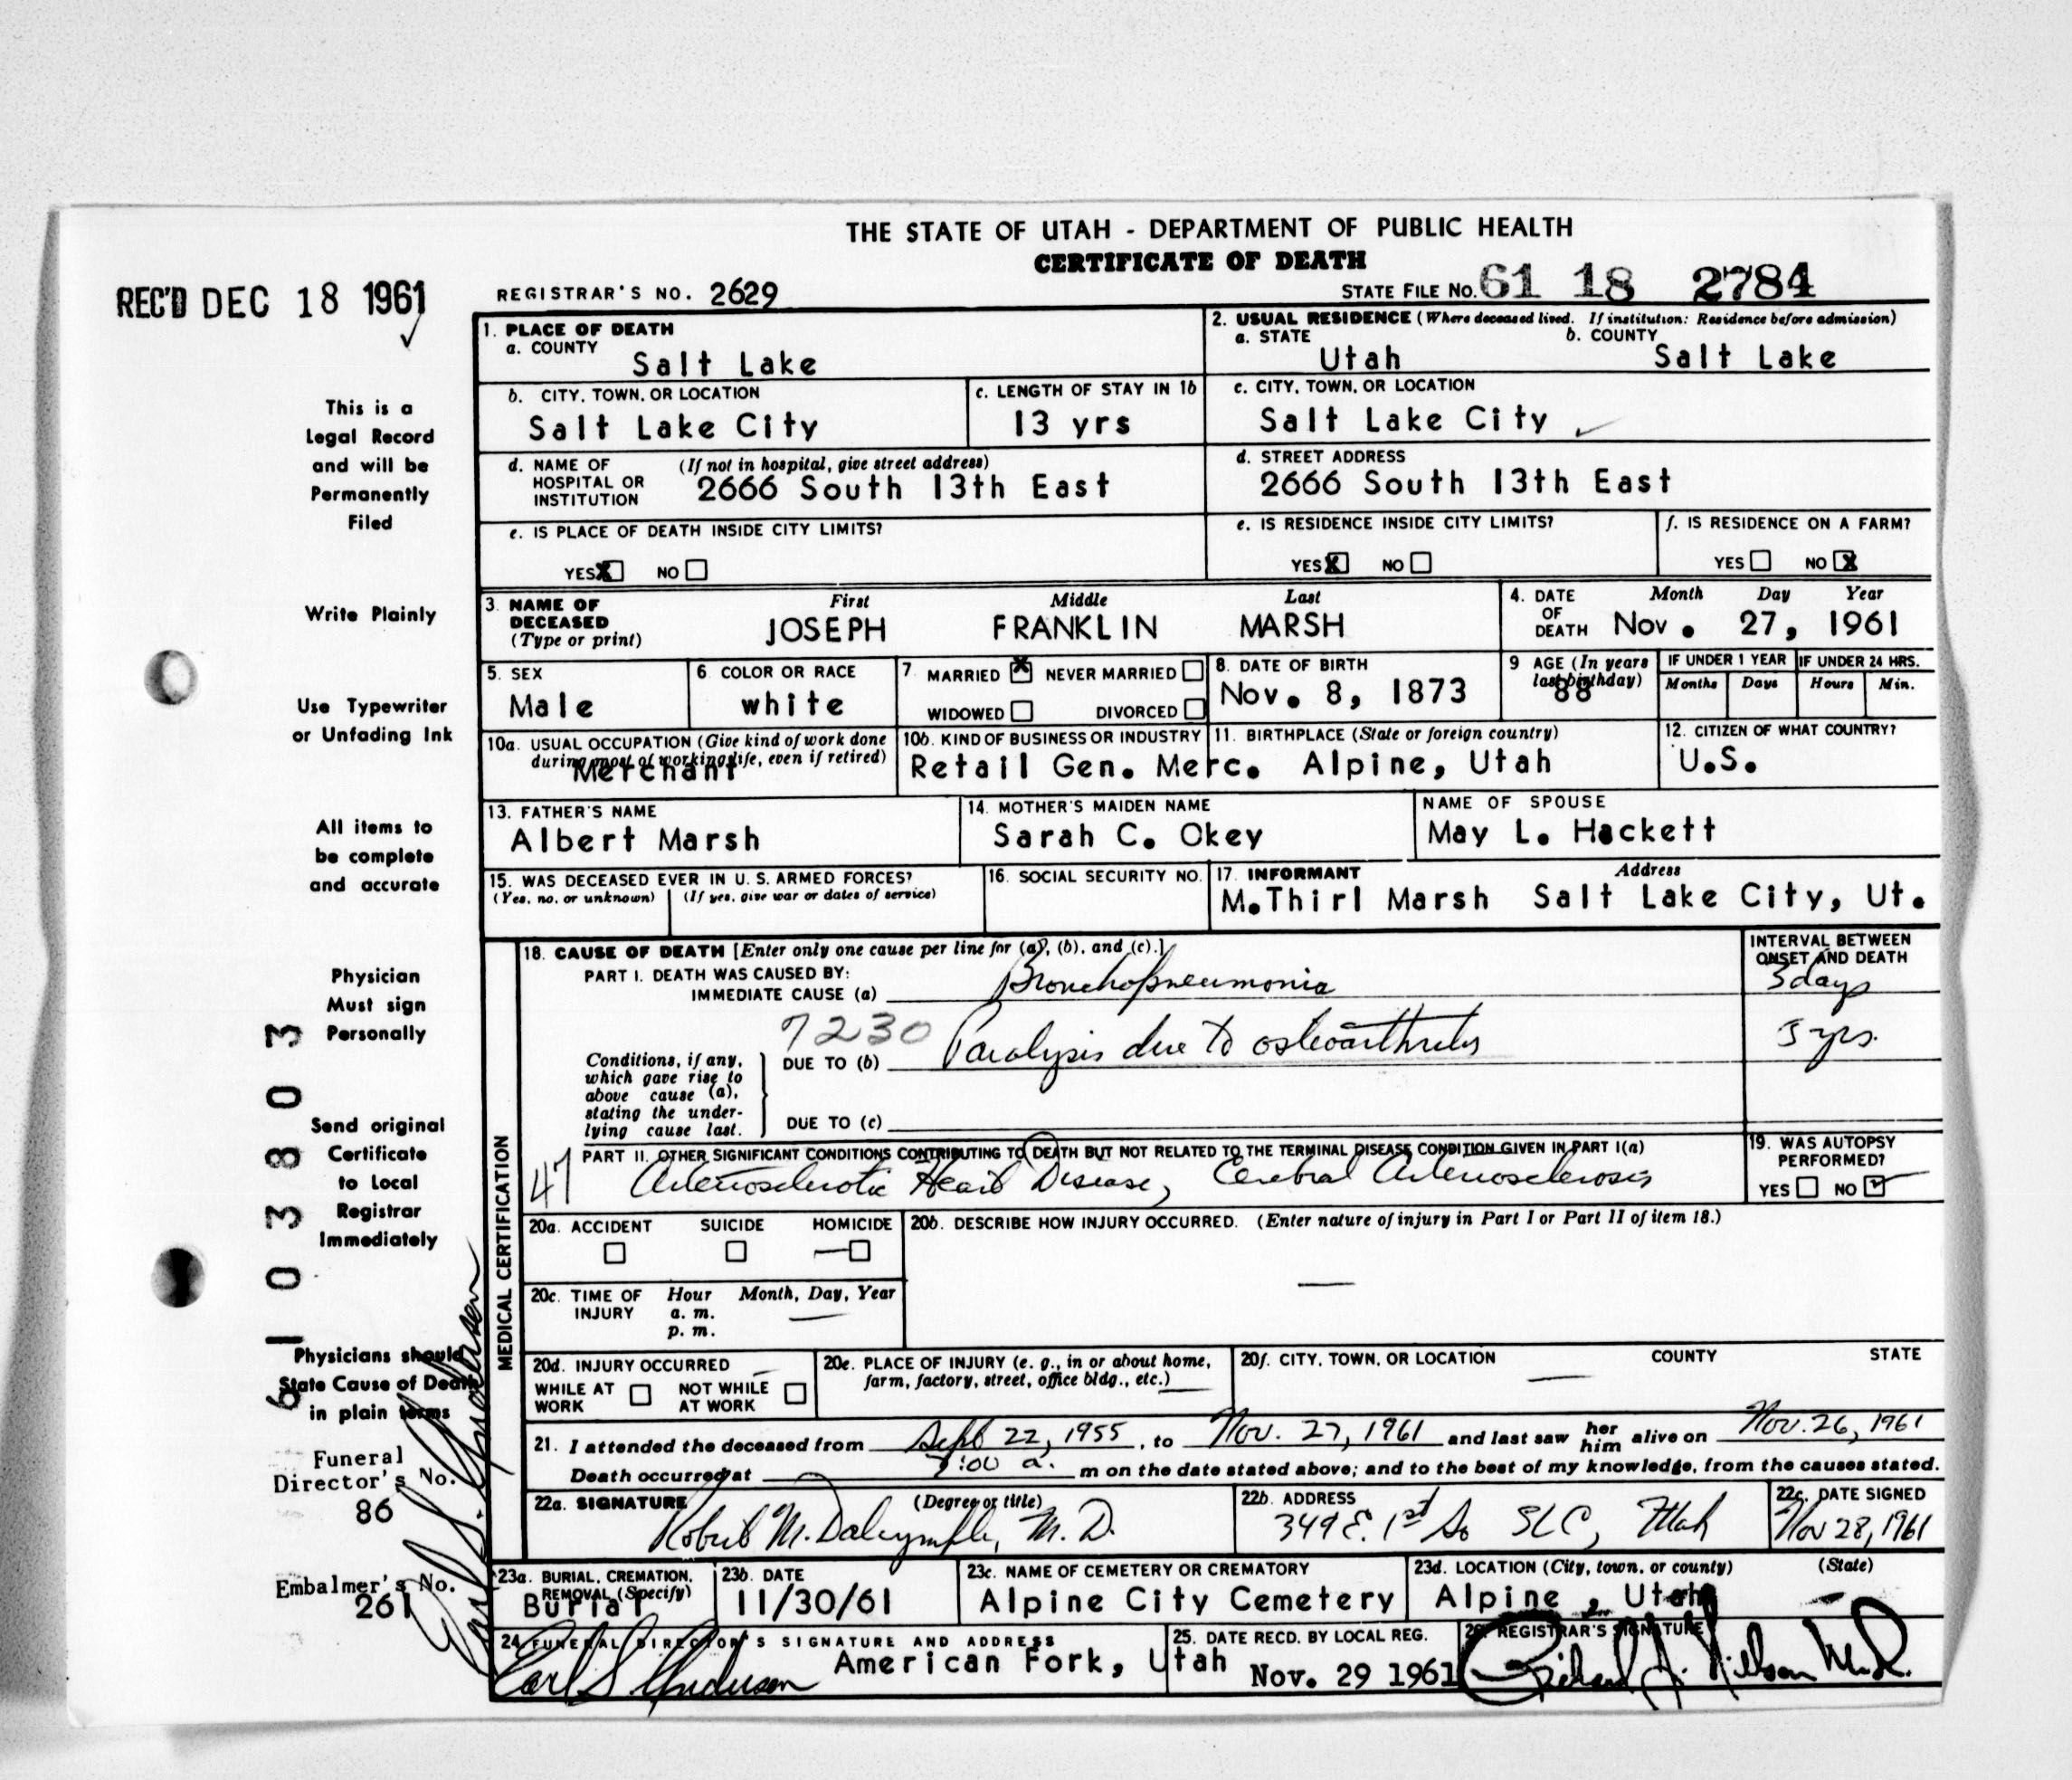 THE STATE OF UTAH - DEPARTMENT OF PUBLIC HEALTH
CERTIFICATE OF DEATH
REC'D DEC 18 1961
REGISTRAR'S NO. 2629
STATE FILE NO. 61 18 2784
1. PLACE OF DEATH
a. COUNTY
Salt Lake
2. USUAL RESIDENCE (Where deceased lived. If institution: Residence before admission)
a. STATE b. COUNTY
Utah Salt Lake
b. CITY, TOWN, OR LOCATION
Salt Lake City
c. LENGTH OF STAY IN 1b
13 yrs
c. CITY, TOWN, OR LOCATION
Salt Lake City
d. NAME OF (If not in hospital, give street address)
HOSPITAL OR
INSTITUTION
2666 South 13th East
d. STREET ADDRESS
2666 South 13th East
e. IS PLACE OF DEATH INSIDE CITY LIMITS?
YES X NO
e. IS RESIDENCE INSIDE CITY LIMITS?
YES X NO
f. IS RESIDENCE ON A FARM?
YES NO X
3. NAME OF
DECEASED
(Type or print)
First Middle Last
JOSEPH FRANKLIN MARSH
4. DATE
OF
DEATH
Month Day Year
Nov. 27, 1961
5. SEX
Male
6. COLOR OR RACE
white
7. MARRIED X NEVER MARRIED
WIDOWED DIVORCED
8. DATE OF BIRTH
Nov. 8, 1873
9 AGE (In years
last birthday)
88
IF UNDER 1 YEAR IF UNDER 24 HRS.
Months Days Hours Min.
10a. USUAL OCCUPATION (Give kind of work done
during most of working life, even if retired)
Merchant
10b. KIND OF BUSINESS OR INDUSTRY
Retail Gen. Merc.
11. BIRTHPLACE (State or foreign country)
Alpine, Utah
12. CITIZEN OF WHAT COUNTRY?
U.S.
13. FATHER'S NAME
Albert Marsh
14. MOTHER'S MAIDEN NAME
Sarah C. Okey
NAME OF SPOUSE
May L. Hackett
15. WAS DECEASED EVER IN U. S. ARMED FORCES?
(Yes, no, or unknown) (If yes, give war or dates of service)
16. SOCIAL SECURITY NO.
17. INFORMANT Address
M.Thirl Marsh Salt Lake City, Ut.
MEDICAL CERTIFICATION
18. CAUSE OF DEATH [Enter only one cause per line for (a), (b), and (c).]
PART I. DEATH WAS CAUSED BY:
IMMEDIATE CAUSE (a) Bronchopneumonia
INTERVAL BETWEEN
ONSET AND DEATH
3 days
7230
Conditions, if any,
which gave rise to
above cause (a),
stating the under-
lying cause last.
DUE TO (b) Paralysis due to osteoarthritis
5 yrs.
DUE TO (c)
PART II. OTHER SIGNIFICANT CONDITIONS CONTRIBUTING TO DEATH BUT NOT RELATED TO THE TERMINAL DISEASE CONDITION GIVEN IN PART I(a)
47 Arteriosclerotic Heart Disease, Cerebral Arteriosclerosis
19. WAS AUTOPSY
PERFORMED?
YES NO
20a. ACCIDENT SUICIDE HOMICIDE
20b. DESCRIBE HOW INJURY OCCURRED. (Enter nature of injury in Part I or Part II of item 18.)
20c. TIME OF
INJURY
Hour Month, Day, Year
a. m.
p. m.
20d. INJURY OCCURRED
WHILE AT
WORK
NOT WHILE
AT WORK
20e. PLACE OF INJURY (e. g., in or about home,
farm, factory, street, office bldg., etc.)
20f. CITY, TOWN, OR LOCATION COUNTY STATE
21. I attended the deceased from Sept 22, 1955, to Nov. 27, 1961 and last saw her him alive on Nov. 26, 1961
Death occurred at 7:00 a. m on the date stated above; and to the best of my knowledge, from the causes stated.
22a. SIGNATURE (Degree or title)
Robert M. Dalrymple, M. D.
22b. ADDRESS
349 E. 1st So SLC, Utah
22c. DATE SIGNED
Nov 28, 1961
23a. BURIAL, CREMATION,
REMOVAL (Specify)
Burial
23b. DATE
11/30/61
23c. NAME OF CEMETERY OR CREMATORY
Alpine City Cemetery
23d. LOCATION (City, town, or county) (State)
Alpine, Utah
24. FUNERAL DIRECTOR'S SIGNATURE AND ADDRESS
Earl S. Anderson American Fork, Utah
25. DATE RECD. BY LOCAL REG.
Nov. 29 1961
26. REGISTRAR'S SIGNATURE
This is a
Legal Record
and will be
Permanently
Filed
Write Plainly
Use Typewriter
or Unfading Ink
All items to
be complete
and accurate
Physician
Must sign
Personally
Send original
Certificate
to Local
Registrar
Immediately
Physicians should
State Cause of Death
in plain terms
Funeral
Director's No.
86
Embalmer's No.
261
Earl S. Anderson
61 03803